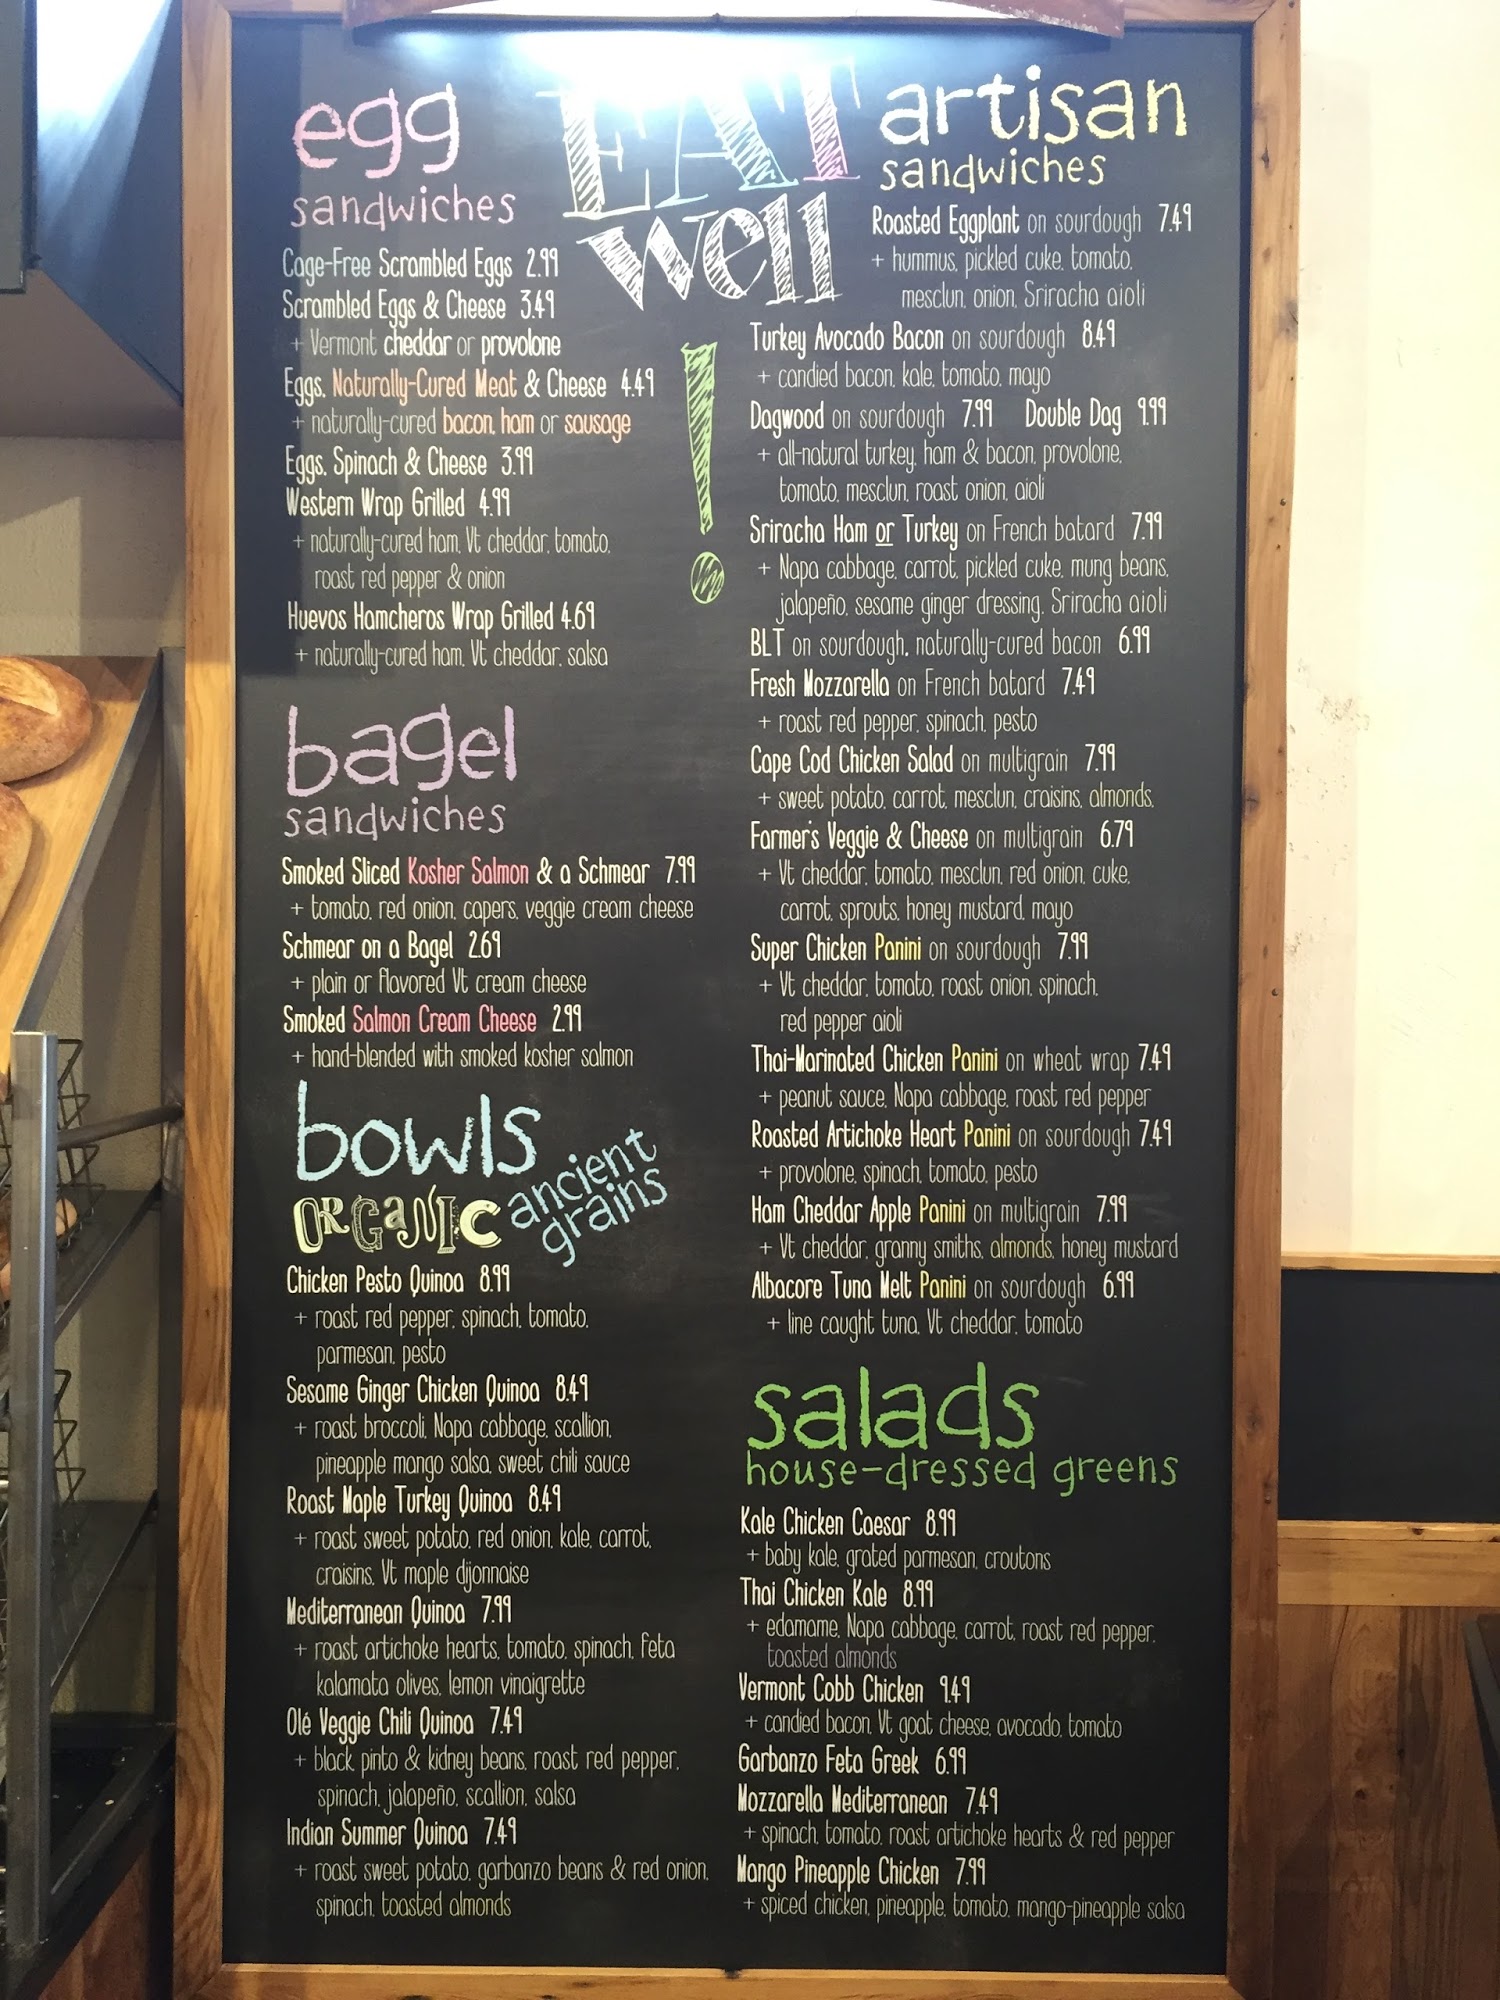 EAT
well
!
egg
sandwiches
Cage-Free Scrambled Eggs 2.99
Scrambled Eggs & Cheese 3.49
+ Vermont cheddar or provolone
Eggs, Naturally-Cured Meat & Cheese 4.49
+ naturally-cured bacon, ham or sausage
Eggs, Spinach & Cheese 3.99
Western Wrap Grilled 4.99
+ naturally-cured ham, Vt cheddar, tomato,
roast red pepper & onion
Huevos Hamcheros Wrap Grilled 4.69
+ naturally-cured ham, Vt cheddar, salsa
bagel
sandwiches
Smoked Sliced Kosher Salmon & a Schmear 7.99
+ tomato, red onion, capers, veggie cream cheese
Schmear on a Bagel 2.69
+ plain or flavored Vt cream cheese
Smoked Salmon Cream Cheese 2.99
+ hand-blended with smoked kosher salmon
bowls
ORGaNiC ancient
grains
Chicken Pesto Quinoa 8.99
+ roast red pepper, spinach, tomato,
parmesan, pesto
Sesame Ginger Chicken Quinoa 8.49
+ roast broccoli, Napa cabbage, scallion,
pineapple mango salsa, sweet chili sauce
Roast Maple Turkey Quinoa 8.49
+ roast sweet potato, red onion, kale, carrot,
craisins, Vt maple dijonnaise
Mediterranean Quinoa 7.99
+ roast artichoke hearts, tomato, spinach, feta
kalamata olives, lemon vinaigrette
Olé Veggie Chili Quinoa 7.49
+ black pinto & kidney beans, roast red pepper,
spinach, jalapeño, scallion, salsa
Indian Summer Quinoa 7.49
+ roast sweet potato, garbanzo beans & red onion,
spinach, toasted almonds
artisan
sandwiches
Roasted Eggplant on sourdough 7.49
+ hummus, pickled cuke, tomato,
mesclun, onion, Sriracha aioli
Turkey Avocado Bacon on sourdough 8.49
+ candied bacon, kale, tomato, mayo
Dagwood on sourdough 7.99 Double Dag 9.99
+ all-natural turkey, ham & bacon, provolone,
tomato, mesclun, roast onion, aioli
Sriracha Ham or Turkey on French batard 7.99
+ Napa cabbage, carrot, pickled cuke, mung beans,
jalapeño, sesame ginger dressing, Sriracha aioli
BLT on sourdough, naturally-cured bacon 6.99
Fresh Mozzarella on French batard 7.49
+ roast red pepper, spinach, pesto
Cape Cod Chicken Salad on multigrain 7.99
+ sweet potato, carrot, mesclun, craisins, almonds,
Farmer's Veggie & Cheese on multigrain 6.79
+ Vt cheddar, tomato, mesclun, red onion, cuke,
carrot, sprouts, honey mustard, mayo
Super Chicken Panini on sourdough 7.99
+ Vt cheddar, tomato, roast onion, spinach,
red pepper aioli
Thai-Marinated Chicken Panini on wheat wrap 7.49
+ peanut sauce, Napa cabbage, roast red pepper
Roasted Artichoke Heart Panini on sourdough 7.49
+ provolone, spinach, tomato, pesto
Ham Cheddar Apple Panini on multigrain 7.99
+ Vt cheddar, granny smiths, almonds, honey mustard
Albacore Tuna Melt Panini on sourdough 6.99
+ line caught tuna, Vt cheddar, tomato
salads
house-dressed greens
Kale Chicken Caesar 8.99
+ baby kale, grated parmesan, croutons
Thai Chicken Kale 8.99
+ edamame, Napa cabbage, carrot, roast red pepper,
toasted almonds
Vermont Cobb Chicken 9.49
+ candied bacon, Vt goat cheese, avocado, tomato
Garbanzo Feta Greek 6.99
Mozzarella Mediterranean 7.49
+ spinach, tomato, roast artichoke hearts & red pepper
Mango Pineapple Chicken 7.99
+ spiced chicken, pineapple, tomato, mango-pineapple salsa